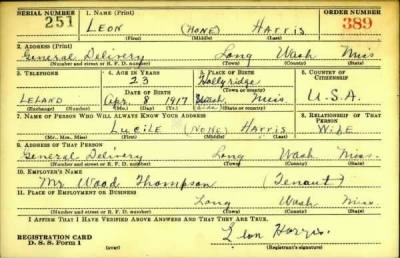 SERIAL NUMBER 1. NAME (Print) ORDER NUMBER
251 LEON (NONE) HARRIS 389
(First) (Middle) (Last)
2. ADDRESS (Print)
General Delivery Long Wash Miss
(Number and street or R. F. D. number) (Town) (County) (State)
3. TELEPHONE 4. AGE IN YEARS 5. PLACE OF BIRTH 6. COUNTRY OF CITIZENSHIP
23 Hollyridge
DATE OF BIRTH (Town or county)
LELAND Apr. 8 1917 Miss. U.S.A.
(Exchange) (Number) (Mo.) (Day) (Yr.) (State or country)
7. NAME OF PERSON WHO WILL ALWAYS KNOW YOUR ADDRESS 8. RELATIONSHIP OF THAT PERSON
Lucile (None) Harris WIFE
(Mr., Mrs., Miss) (First) (Middle) (Last)
9. ADDRESS OF THAT PERSON
General Delivery Long Wash Miss.
(Number and street or R. F. D. number) (Town) (County) (State)
10. EMPLOYER'S NAME
Mr Wood Thompson (Tenant)
11. PLACE OF EMPLOYMENT OR BUSINESS
Long Wash Miss.
(Number and street or R. F. D. number) (Town) (County) (State)
I AFFIRM THAT I HAVE VERIFIED ABOVE ANSWERS AND THAT THEY ARE TRUE.
REGISTRATION CARD
D. S. S. Form 1 (over) Leon Harris
(Registrant's signature)